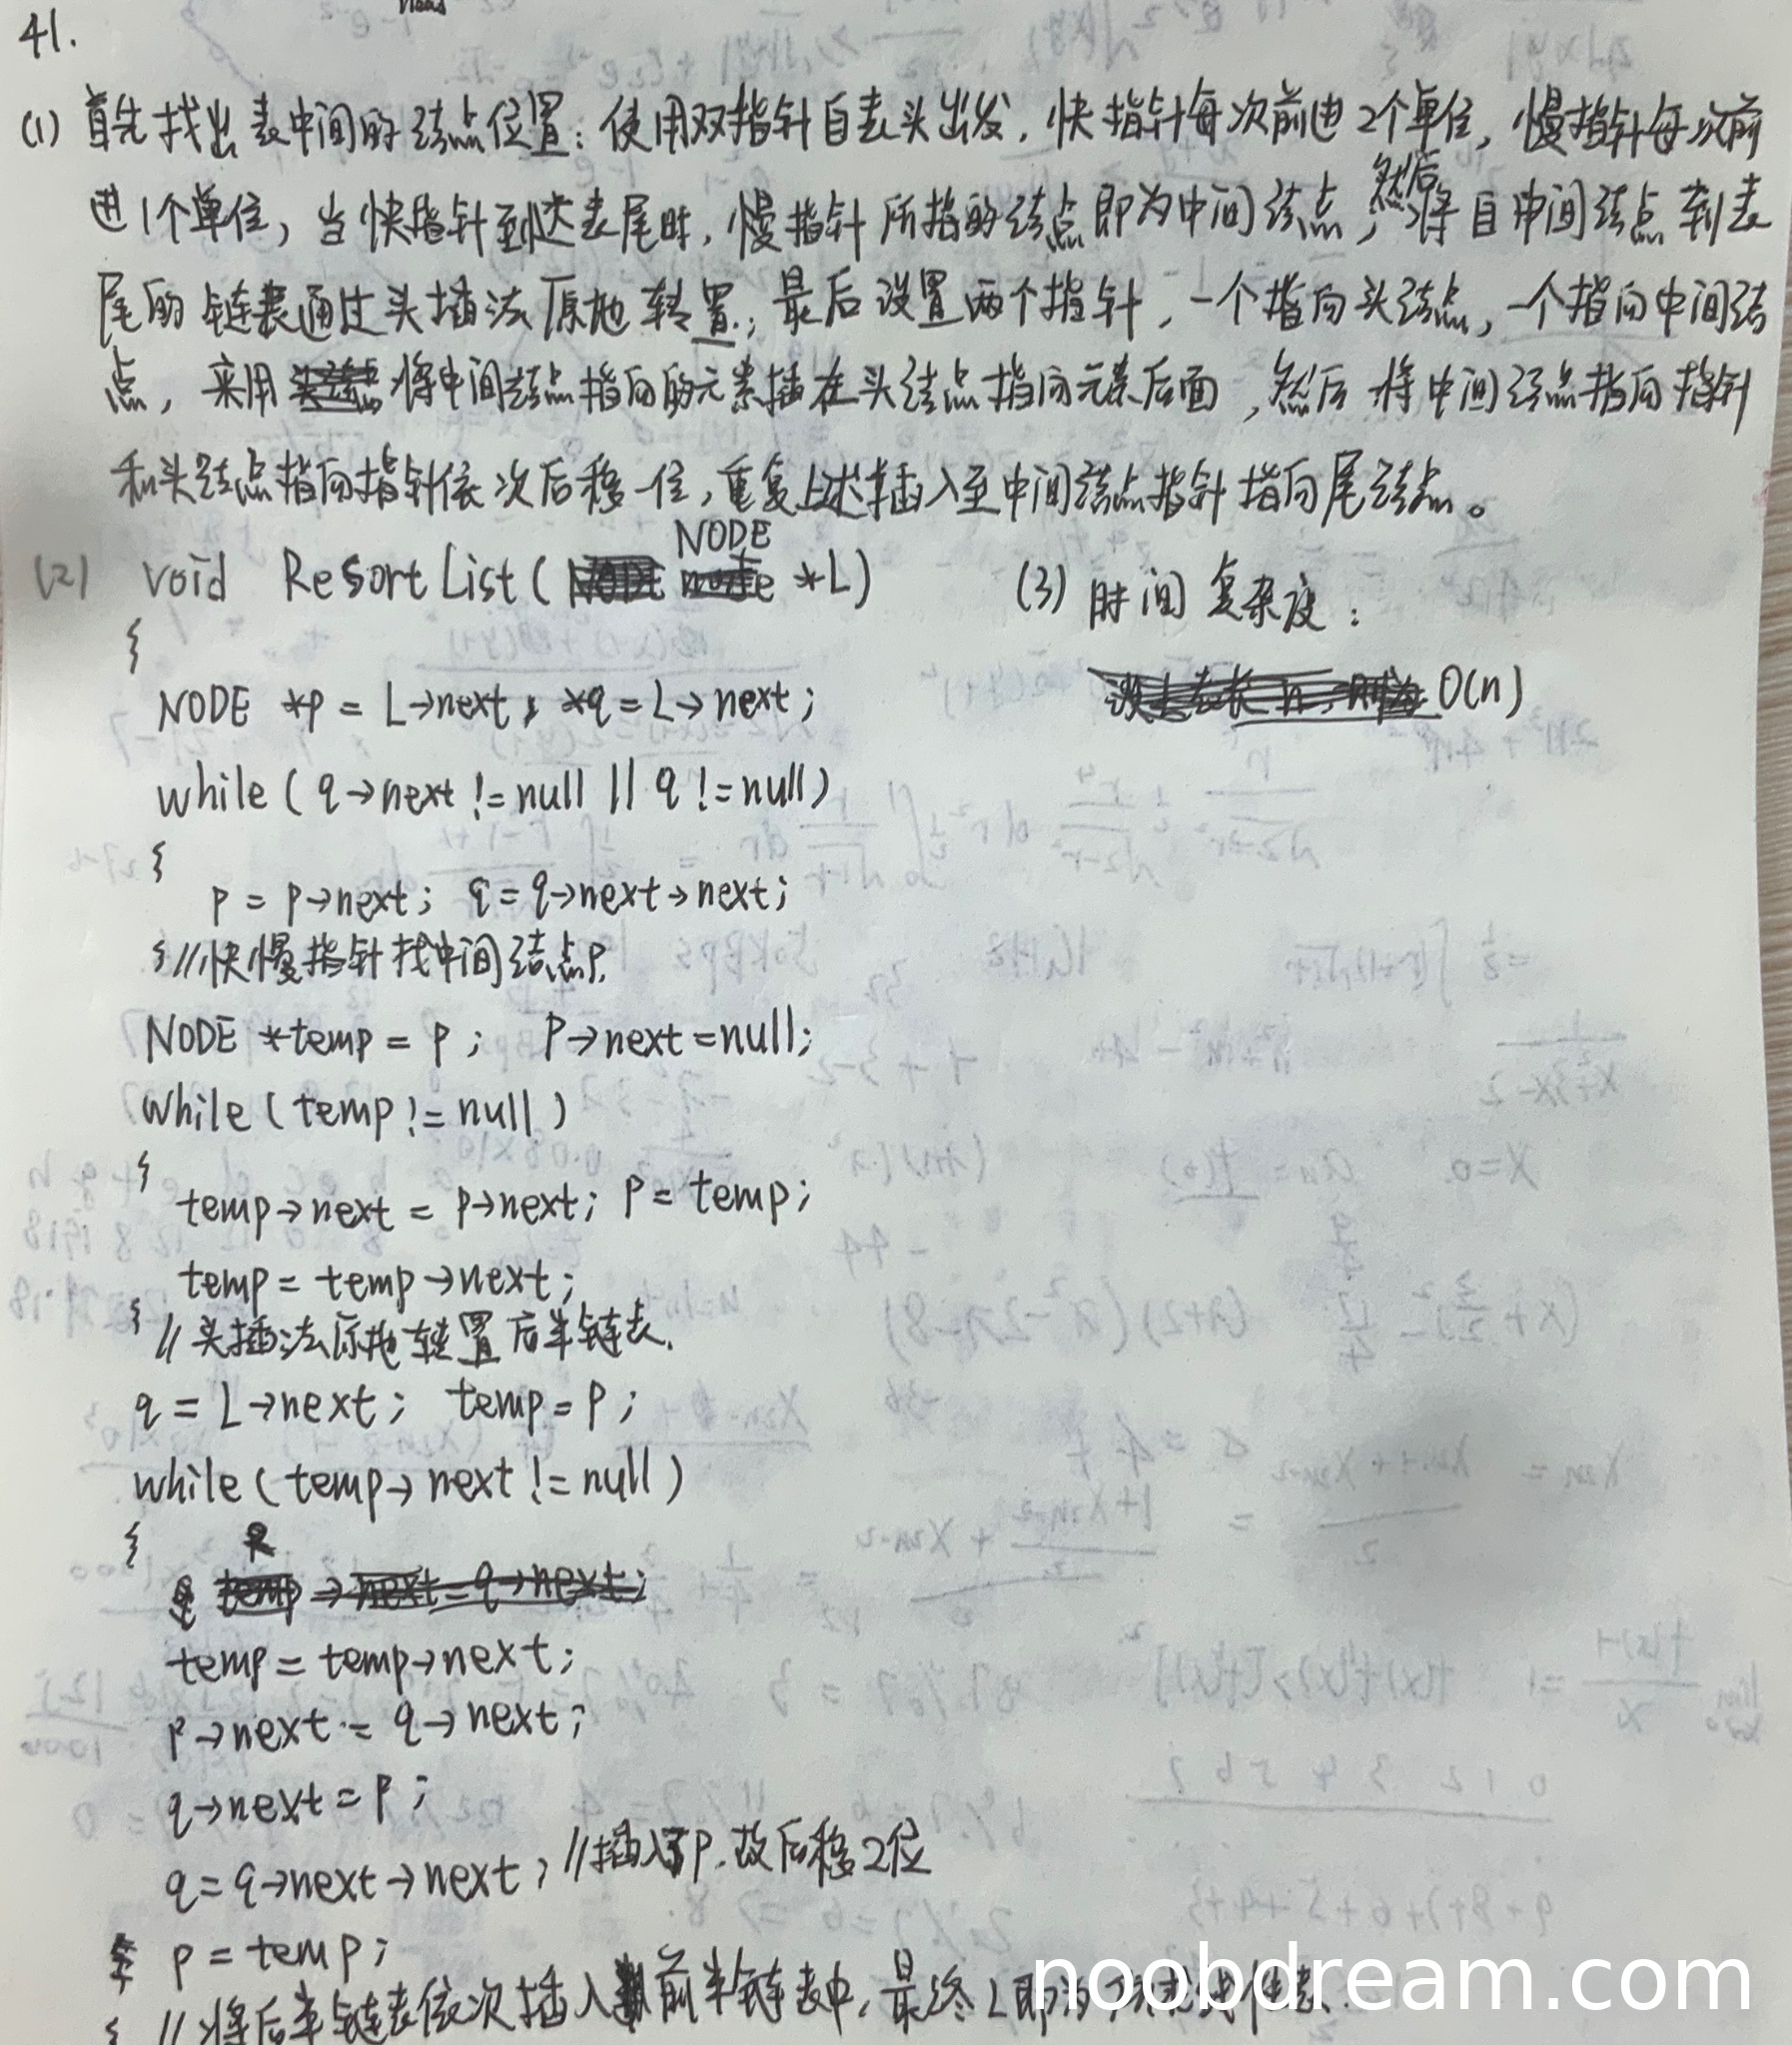 41.
(1) 首先找出表中间的结点位置：使用双指针自表头出发，快指针每次前进2个单位，慢指针每次前
进1个单位，当快指针到达表尾时，慢指针所指的结点即为中间结点，然后将自中间结点到表
尾的链表通过头插法原地转置；最后设置两个指针，一个指向头结点，一个指向中间结
点，采用将中间结点指向的元素插在头结点指向元素后面，然后将中间结点指向指针
和头结点指向指针依次后移一位，重复上述插入至中间结点指针指向尾结点。
(2) void ResortList(NODE *L)
{
NODE *p = L→next, *q = L→next;
while(q→next != null || q != null)
{
p = p→next; q = q→next→next;
} //快慢指针找中间结点P.
NODE *temp = p; P→next = null;
while(temp != null)
{
temp→next = p→next; P = temp;
temp = temp→next;
} //头插法原地转置后半链表.
q = L→next; temp = P;
while(temp→next != null)
{
temp = temp→next;
P→next = q→next;
q→next = P;
q = q→next→next; //插入了P.故后移2位
p = temp;
} //将后半链表依次插入前半链表中，最终L即为
(3) 时间复杂度：
O(n)
noobdream.com